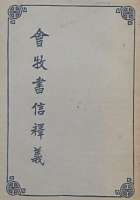 會牧書信釋義